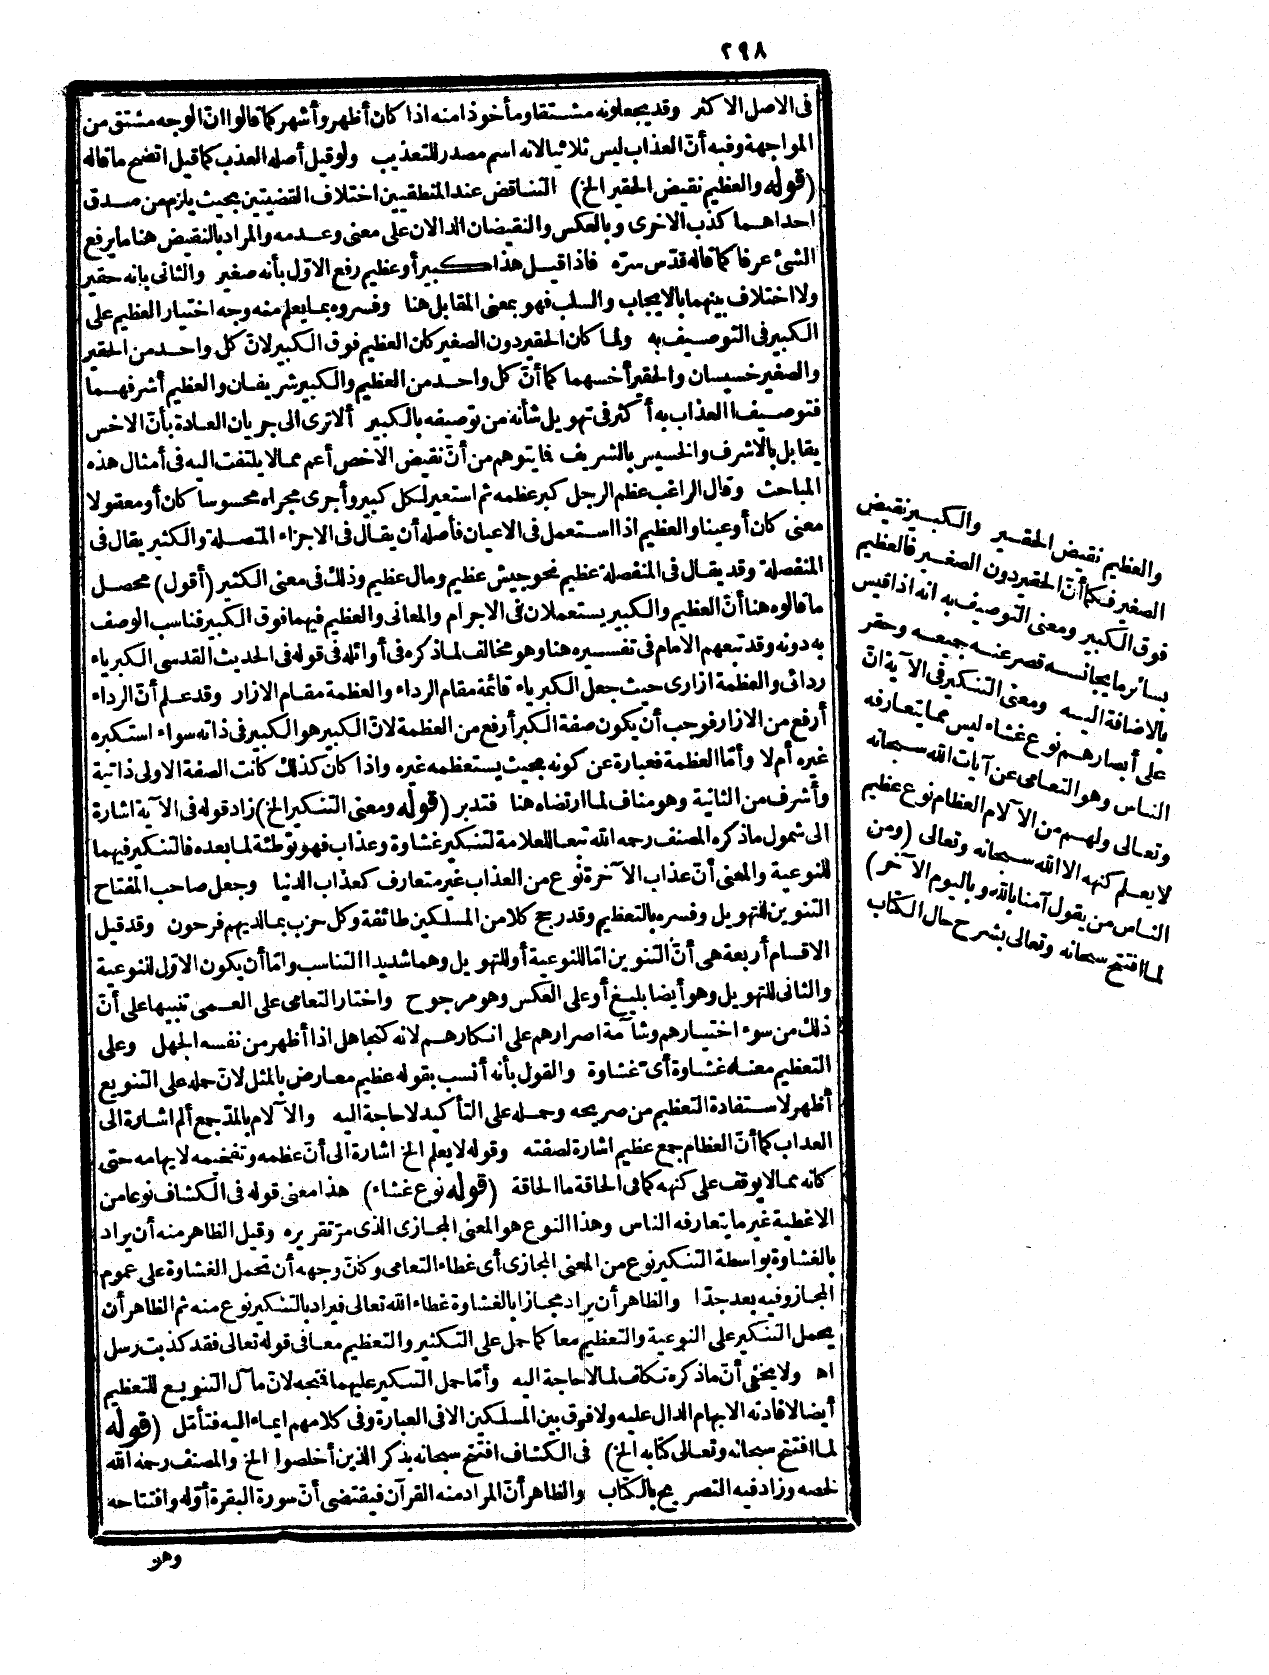 ٢٩٨
فى الاصل الاكثر وقد يجعلونه مشتقا ومأخوذا منه اذا كان أظهر وأشهر كما قالوا انّ الوجه مشتق من
المواجهة وفيه أنّ العذاب ليس ثلاثيا لانه اسم مصدر للتعذيب ولو قيل أصله العذب كما قيل اتضح ما قاله
(قوله والعظيم نقيض الحقير الخ) التناقض عند المنطقيين اختلاف القضيتين بحيث يلزم من صدق
احداهما كذب الاخرى وبالعكس والنقيضان الدالان على معنى وعدمه والمراد بالنقيض هنا ما يرفع
الشئ عرفا كما قاله قدّس سرّه فاذا قيل هذا كبير أو عظيم رفع الاوّل بأنه صغير والثانى بانه حقير
ولا اختلاف بينهما بالايجاب والسلب فهو بمعنى المقابل هنا وفسروه بما يعلم منه وجه اختيار العظيم على
الكبير فى التوصيف به ولما كان الحقير دون الصغير كان العظيم فوق الكبير لانّ كل واحد من الحقير
والصغير خسيسان والحقير أخسهما كما أنّ كل واحد من العظيم والكبير شريفان والعظيم أشرفهما
فتوصيف العذاب به أكثر فى تهويل شأنه من توصيفه بالكبير ألا ترى الى جريان العادة بأنّ الاخس
يقابل بالاشرف والخسيس بالشريف فما يتوهم من أنّ نقيض الاخص أعم مما لا يلتفت اليه فى أمثال هذه
المباحث وقال الراغب عظم الرجل كبر عظمه ثم استعير لكل كبير وأجرى مجراه محسوسا كان أو معقولا
معنى كان أو عينا والعظيم اذا استعمل فى الاعيان فأصله أن يقال فى الاجزاء المتصلة والكثير يقال فى
المنفصلة وقد يقال فى المنفصلة عظيم نحو جيش عظيم ومال عظيم وذلك فى معنى الكثير (أقول) محصل
ما قالوه هنا أنّ العظيم والكبير يستعملان فى الاجرام والمعانى والعظيم فيهما فوق الكبير فناسب الوصف
به دونه وقد تبعهم الامام فى تفسيره هنا وهو مخالف لما ذكره فى أوائله فى قوله فى الحديث القدسى الكبرياء
ردائى والعظمة ازارى حيث جعل الكبرياء قائمة مقام الرداء والعظمة مقام الازار وقد علم أنّ الرداء
أرفع من الازار فوجب أن يكون صفة الكبر أرفع من العظمة لانّ الكبير هو الكبير فى ذاته سواء استكبره
غيره أم لا وأمّا العظمة فعبارة عن كونه بحيث يستعظمه غيره واذا كان كذلك كانت الصفة الاولى ذاتية
وأشرف من الثانية وهو مناف لما ارتضاه هنا فتدبر (قوله ومعنى التنكير الخ) زاد قوله فى الآية اشارة
الى شمول ما ذكره المصنف رحمه الله تبعا للعلامة لتنكير غشاوة وعذاب فهو توطئة لما بعده فالتنكير فيهما
للنوعية والمعنى أنّ عذاب الآخرة نوع من العذاب غير متعارف كعذاب الدنيا وجعل صاحب المفتاح
التنوين للتهويل وفسره بالتعظيم وقد رجح كلا من المسلكين طائفة وكل حزب بما لديهم فرحون وقد قيل
الاقسام أربعة هى أنّ التنوين امّا للنوعية أو للتهويل وهما شديدا التناسب وامّا أن يكون الاوّل للنوعية
والثانى للتهويل وهو أيضا بليغ أو على العكس وهو مرجوح واختار التعامى على العمى تنبيها على أنّ
ذلك من سوء اختيارهم وشآمة اصرارهم على انكارهم لانه كتجاهل اذا أظهر من نفسه الجهل وعلى
التعظيم معناه غشاوة أى غشاوة والقول بأنه أنسب بقوله عظيم معارض بالمثل لانّ حمله على التنويع
أظهر لاستفادة التعظيم من صريحه وحمله على التأكيد لا حاجة اليه والآلام بالمدّ جمع ألم اشارة الى
العذاب كما أنّ العظام جمع عظيم اشارة لصفته وقوله لا يعلم الخ اشارة الى أنّ عظمه وتفخيمه لابهامه حتى
كأنه مما لا يوقف على كنهه كما فى الحاقة ما الحاقة (قوله نوع غشاء) هذا معنى قوله فى الكشاف نوعا من
الاغطية غير ما يتعارفه الناس وهذا النوع هو المعنى المجازى الذى مرّ تقريره وقيل الظاهر منه أن يراد
بالغشاوة بواسطة التنكير نوع من المعنى المجازى أى غطاء التعامى وكانّ وجهه أن تحمل الغشاوة على عموم
المجاز وفيه بعد جدّا والظاهر أن يراد مجازا بالغشاوة غطاء الله تعالى فيراد بالتنكير نوع منه ثم الظاهر أن
يحمل التنكير على النوعية والتعظيم معا كما حمل على التكثير والتعظيم معا فى قوله تعالى فقد كذبت رسل
اه ولا يخفى أنّ ما ذكره تكلف لما لا حاجة اليه وأمّا حمل التنكير عليهما فتجه لانّ مآل التنويع للتعظيم
أيضا لافادته الابهام الدال عليه ولا فرق بين المسلكين الا فى العبارة وفى كلامهم ايماء اليه فتأمّل (قوله
لما افتتح سبحانه وتعالى كتابه الخ) فى الكشاف افتتح سبحانه بذكر الذين أخلصوا الخ والمصنف رحمه الله
لخصه وزاد فيه التصريح بالكتاب والظاهر أنّ المراد منه القرآن فيقتضى أنّ سورة البقرة أوّله وافتتاحه
وهن
والعظيم نقيض الحقير والكبير نقيض
الصغير فكما أنّ الحقير دون الصغير فالعظيم
فوق الكبير ومعنى التوصيف به انه اذا قيس
بسائر ما يجانسه قصر عنه جميعه وحقر
بالاضافة اليه ومعنى التنكير فى الآية انّ
على أبصارهم نوع غشاء ليس مما يتعارفه
الناس وهو التعامى عن آيات الله سبحانه
وتعالى ولهم من الآلام العظام نوع عظيم
لا يعلم كنهه الا الله سبحانه وتعالى (ومن
الناس من يقول آمنا بالله وباليوم الآخر)
لما افتتح سبحانه وتعالى بشرح حال الكتاب